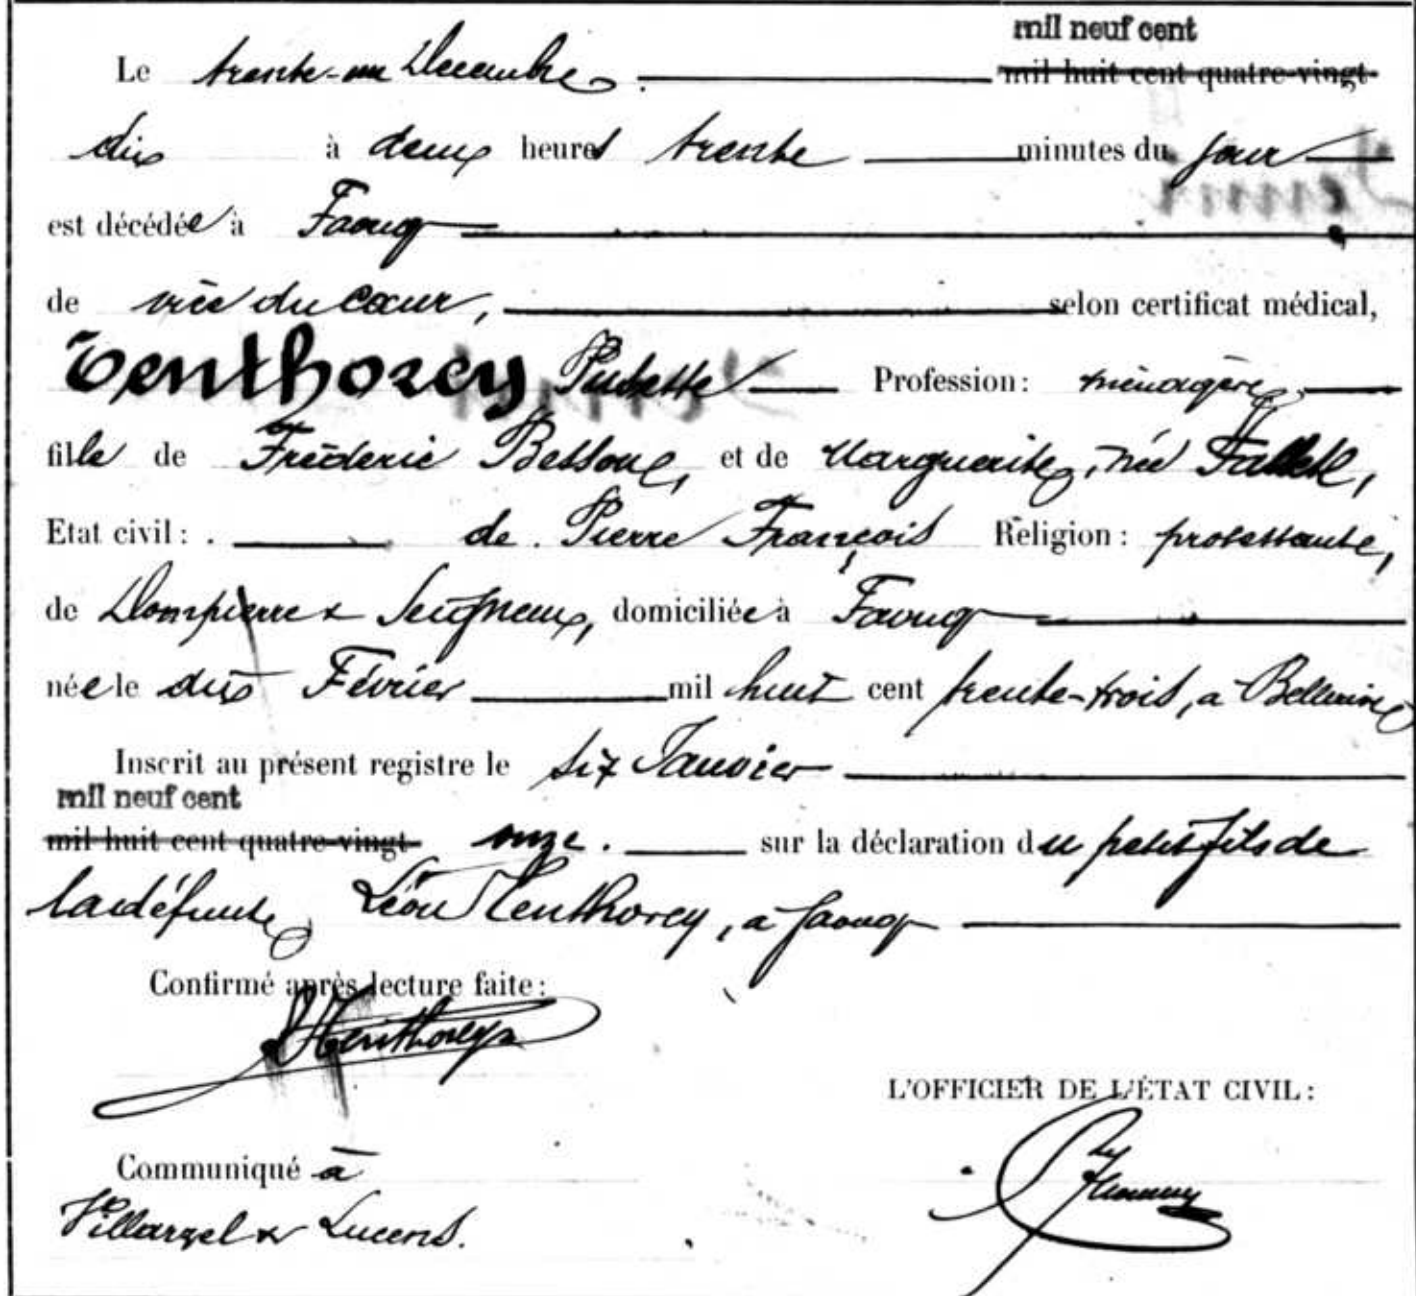 mil neuf cent
Le trente-un Décembre. mil huit cent quatre-vingt-
dix à deux heures trente minutes du jour
est décédée à Faoug
de vice du cœur, selon certificat médical,
Tenthorey Profession: ménagère
fille de Fréderic Besson, et de Marguerite, née
Etat civil: de Pierre François Religion: protestante,
de Dompierre & Seigneux, domiciliée à Faoug
née le dix Février mil huit cent trente-trois, à Bellerive
Inscrit au présent registre le six Janvier
mil neuf cent
mil huit cent quatre-vingt- onze. sur la déclaration du petit fils de
la défunte, Léon Tenthorey, à Faoug
Confirmé après lecture faite:
Tenthorey
L'OFFICIER DE L'ÉTAT CIVIL:
Communiqué à
Villarzel & Lucens.